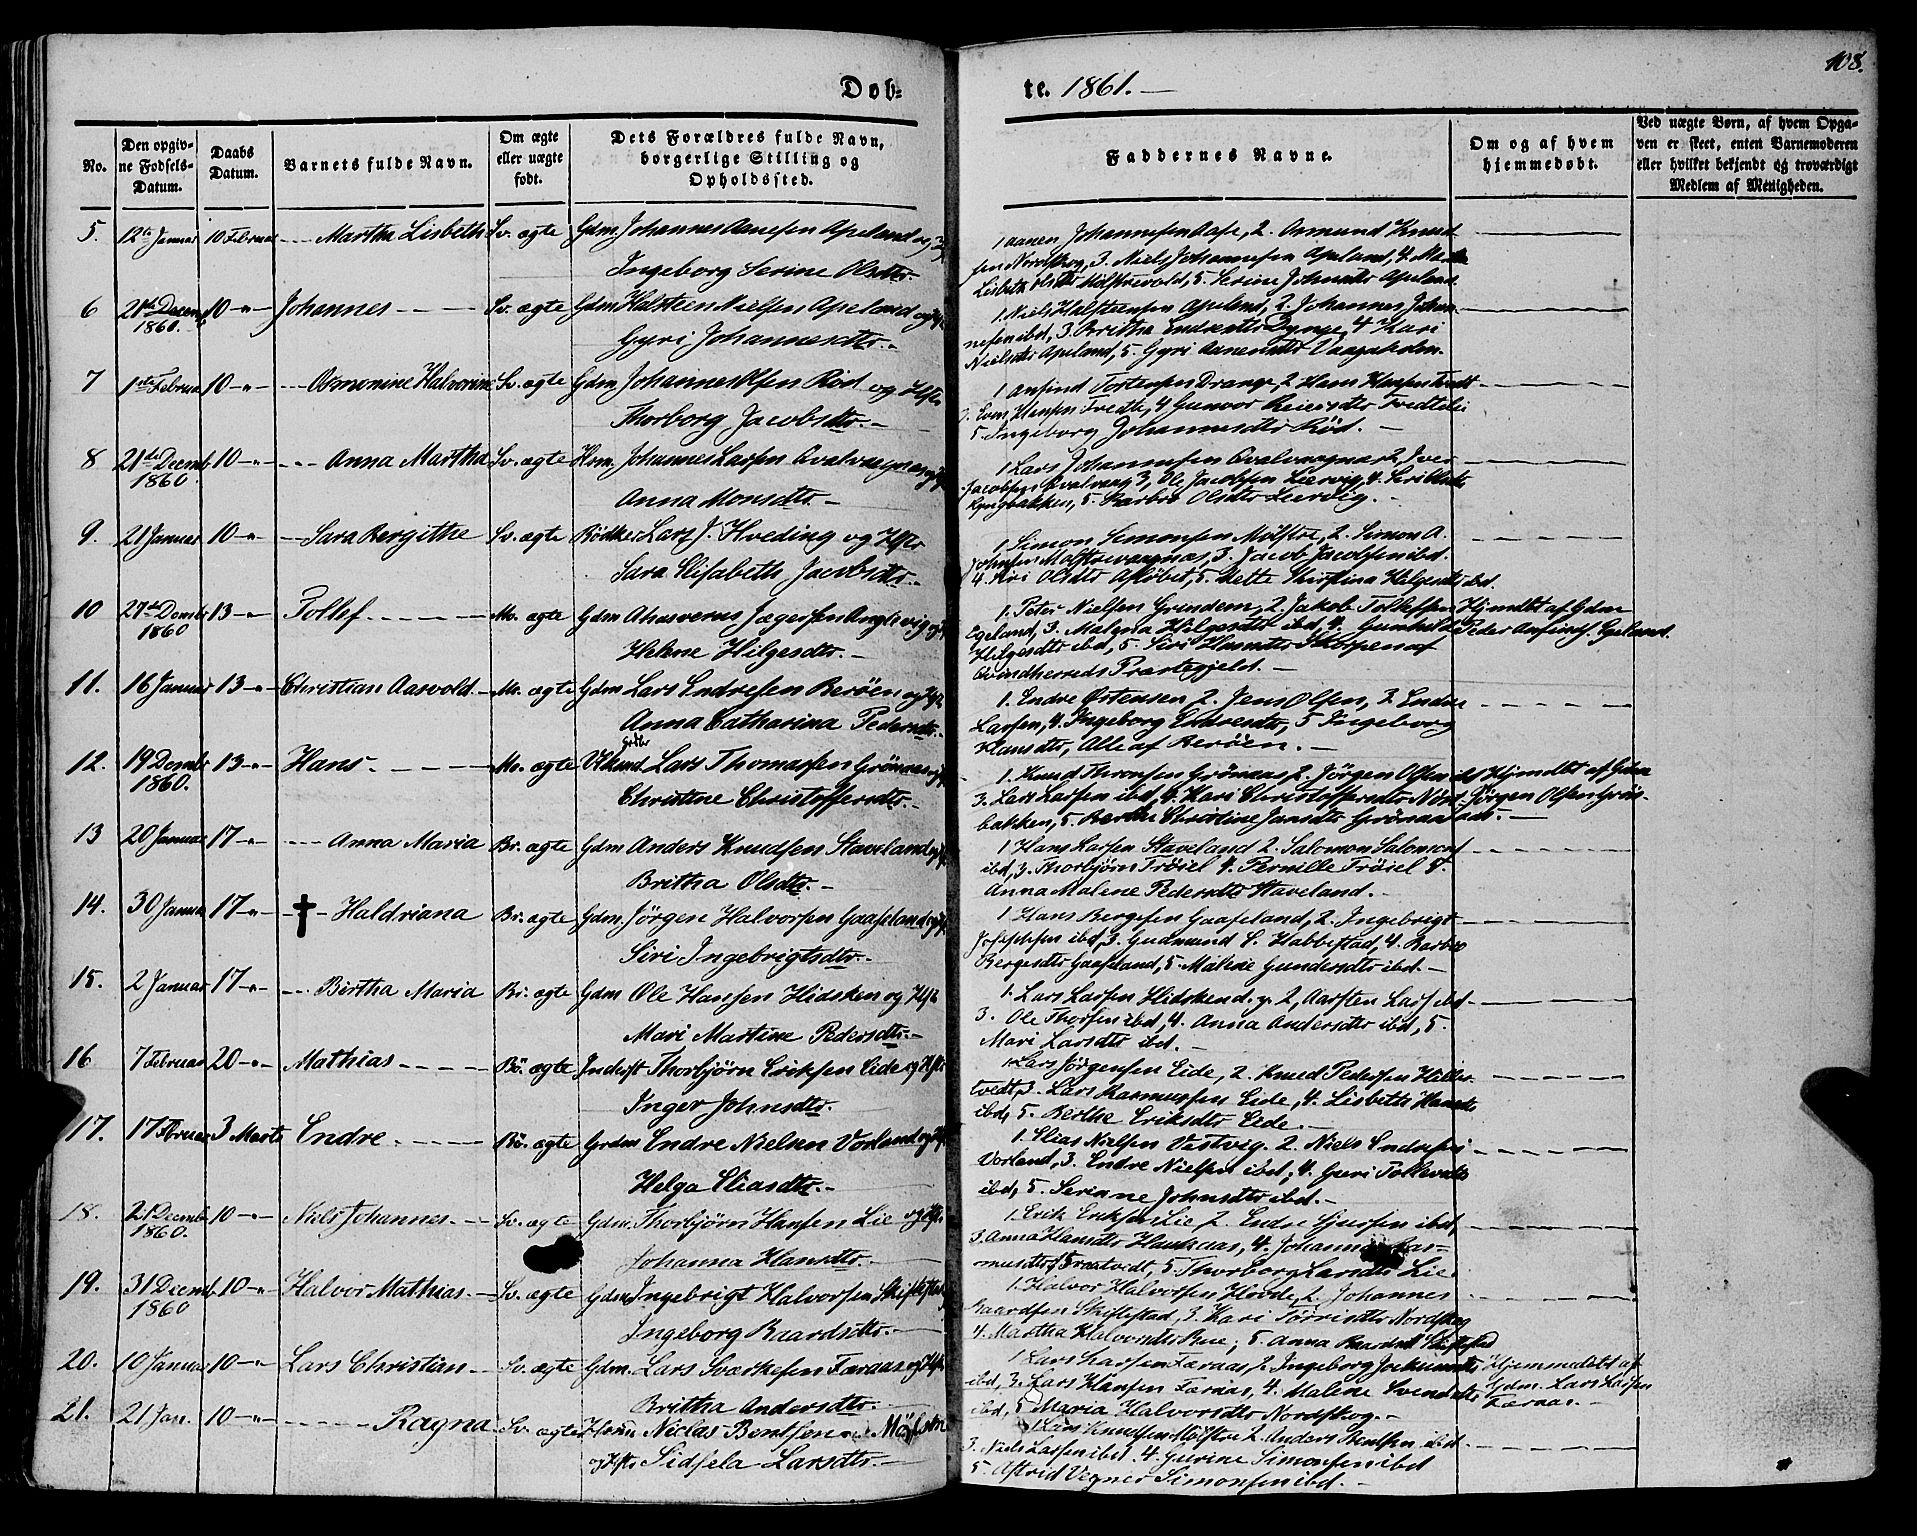 108.
Døb=
te. 1861. —
No.
Den opgiv-
ne Fødsels-
Datum.
Daabs
Datum.
Barnets fulde Navn.
Om ægte
eller uægte
født.
Dets Forældres fulde Navn,
borgerlige Stilling og
Opholdssted.
Faddernes Navne.
Om og af hvem
hjemmedøbt.
Ved uægte Børn, af hvem Opga-
ven er skeet, enten Barnemoderen
eller hvilket bekjendt og troværdigt
Medlem af Menigheden.
5. 12te Januar 10 Februar Martha Lisbeth Sv. ægte Gdm. Johannes Aanesen Apeland og
Ingeborg Serine Olsdtr.
1 Aanen Johannesen Aase, 2. Asmund Knud-
sen Nordskog, 3. Niels Johannesen Apeland, 4. Martha
Lisbeth Olsdtr, 5. Serine Johnsdtr Apeland
6 21de Decemb 10 -"- Johannes Sv. ægte Gdm Halsteen Nielsen Apeland og
1860.
Gyri Johannesdtr. -
1. Niels Halsteensen Apeland, 2. Johannes Johan-
nesen ibd, 3. Britha Endresdtr, 4 Kari
Nielsdtr Apeland, 5. Gyri Aanensdtr Vaagaholm.
7 1ste Februar 10 -"- Sv. ægte Gdm Johannes Olsen Rød og Hst
Thorborg Jacobsdtr. -
1 Anfind Tostensen Drange, 2 Hans Hansen Tvedt
Hansen Tvedte, 4 Gunvor Reiersdtr
5. Ingeborg Johannesdtr Rød. -
8 21de Decemb 10 -"- Anna Martha Sv. ægte Hsm. Johannes Larsen Qvalvaagnæs og
1860.
Anna Monsdtr. -
1 Lars Johannesen Qvalvaagnæs 2, Iver
Jacobsen Qvalvaag 3, Ole Jacobsen Liervig, 4.
5. Barbro Olsdtr Liervig. -
9. 21 Januar 10 -"- Sara Bergithe Sv. ægte Bødker Lars J. Hveding og Hst
Sara Elisabeth Jacobsdtr. -
1. Simon Simonsen Mølstre, 2. Simon A.
Johnsen Mølstrevaagnæs, 3. Jacob Jacobsen ibd.
4. Siri Olsdtr, 5. Mette Kirstina Helgesdtr ibd.
10 27de Decemb 13 -"- Tollef Mo. ægte Gdm Ahasverus Jægersen Anglevig og
1860
Helene Helgesdtr. -
1. Peter Nielsen Grindem, 2. Jakob Tollefsen Hjmdbt af Gdm
Egeland, 3. Malena Helgesdtr ibd, 4. Gunhilde Peder Anfinds. Egeland.
Helgesdtr ibd, 5. Siri Hansdtr Skorpen af
Qvindherreds Præstegjeld. -
11. 16 Januar 13 -"- Christian Aasvold Mo. ægte Gdm Lars Endresen Berøen og Hst
Anna Catharina Pedersdtr. -
1. Endre Østensen 2. Jens Olsen, 3. Endre
Larsen, 4. Ingeborg Endresdtr, 5 Ingeborg
Klausdtr, Alle af Berøen. -
12. 19 Decmb 13 -"- Hans. Mo. ægte Lars Thomassen Grønnæs og
1860.
Christine Christoffersdtr. -
1. Knud Thronsen Grønaas 2. Jørgen Olsen ibd Hjmdbt af Gdm
3. Lars Larsen ibd, 4. Kari Christoffersdtr Nord- Jørgen Olsen Grøn-
bakken, 5. Berthe Christine Jansdtr Grønaas. aas. -
13 20 Januar 17 -"- Anna Maria Br. ægte Gdm Anders Knudsen Staveland og
Britha Olsdtr. -
1 Hans Larsen Staveland 2. Salomon Salomons
ibd, 3. Thorbjørn Trøiel 4. Pernille Trøiel 5.
Anna Malene Pedersdtr Staveland. -
14. 30 Januar 17 -"- † Haldriana Br. ægte Gdm. Jørgen Halvorsen Gaaseland og
Siri Ingebrigtsdtr. -
1 Hans Bergesen Gaaseland, 2. Ingebrigt
Josephsen ibd, 3. Gudmund S. Habbestad, 4. Barbro
Bergesdtr Gaaseland, 5. Malene Gundersdtr ibd. -
15. 2 Januar 17 -"- Bertha Maria Br. ægte Gdm Ole Hansen Hidsken og Hst
Mari Martine Pedersdtr. -
1. Lars Larsen Hidsken d. y. 2, Aarsten Lars. ibd
3. Ole Thorsen ibd, 4. Anna Andersdtr ibd, 5.
Mari Larsdtr ibd. -
16 7 Februar 20 -"- Mathias Bø. ægte Inderst Thorbjørn Eriksen Eide og Hst
Inger Johnsdtr. -
1 Lars Jørgensen Eide, 2. Knud Pedersen Hille-
tvedt, 3. Lars Rasmussen Eide, 4. Lisbeth Hansdtr
ibd, 5. Berthe Eriksdtr Eide. -
17. 17 Februar 3 Marts Endre Bø. ægte Grdm Endre Nielsen Vorland og
Helga Eliasdtr. -
1. Elias Nielsen Vestvig. 2. Niels Endresen
Vorland, 3. Endre Nielsen ibd, 4. Guri Tollevsdtr
ibd, 5. Seriane Johnsdtr ibd. -
18. 21 Decemb 10 -"- Niels Johannes Sv. ægte Gdm. Thorbjørn Hansen Lie og Hst
1860.
Johanna Hansdtr. -
1. Erik Eriksen Lie 2. Endre ibd,
3. Anna Hansdtr Haukaas, 4. Johanna Ras-
musdtr Trætvedt, 5. Thorborg Larsdtr Lie.
19. 31 Decemb 10 -"- Halvor Mathias Sv. ægte Gdm Ingebrigt Halvorsen Skiftestad
1860
Ingeborg Baardsdtr. -
1. Halvor Halvorsen Hovde, 2. Johannes
Baardsen Skiftestad, 3. Kari Nordskog
4. Martha Halvorsdtr Rue, 5. Anna Baardsdtr Skiftestad
20. 10 Januar 10 -"- Lars Christian Sv. ægte Gdm. Lars Sværkesen Færaas og Hst
Britha Andersdtr. -
1 Lars Larsen Færaas, 2. Ingeborg Joakimsdtr Hjemmedøbt af
ibd, 3. Lars Hansen Færaas, 4. Malene Svendsdtr Gdm. Lars Larsen
ibd, 5. Maria Halvorsdtr Nordskog. - Færaas. -
21. 21 Jan. 10 -"- Ragna Sv. ægte Niclas Bentsen Møgster
og Hst Sidsela Larsdtr. -
1. Lars Knudsen Møgstre 2. Anders Bentsen ibd
3. Niels Larsen ibd. 4. Gurine Simonsen ibd
5. Astrid Vegner Simonsen ibd. -